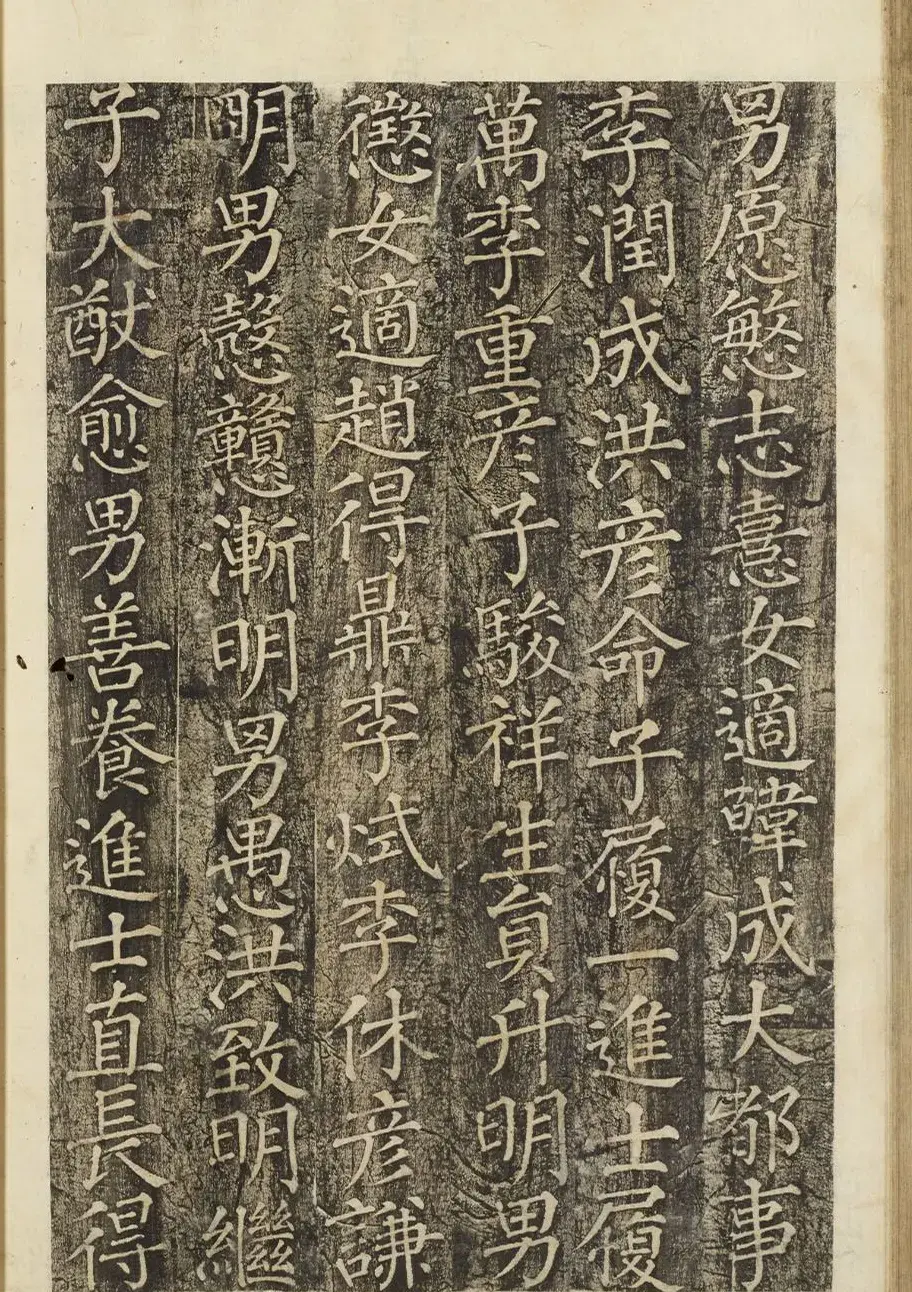 男愿慜志憙女適韓成大都事
李潤成洪彦命子履一進士履
萬李重彦子駿祥生員升明男
懲女適趙得鼎李烒李休彦謙
明男愨戇漸明男愚洪致明繼
子大猷愈男善養進士直長得